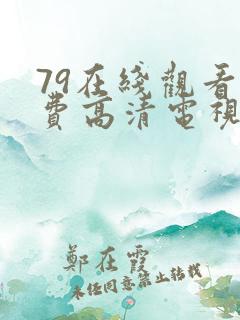 79在綫觀看
費高清電視
鄭在霞
未任同意禁止转载